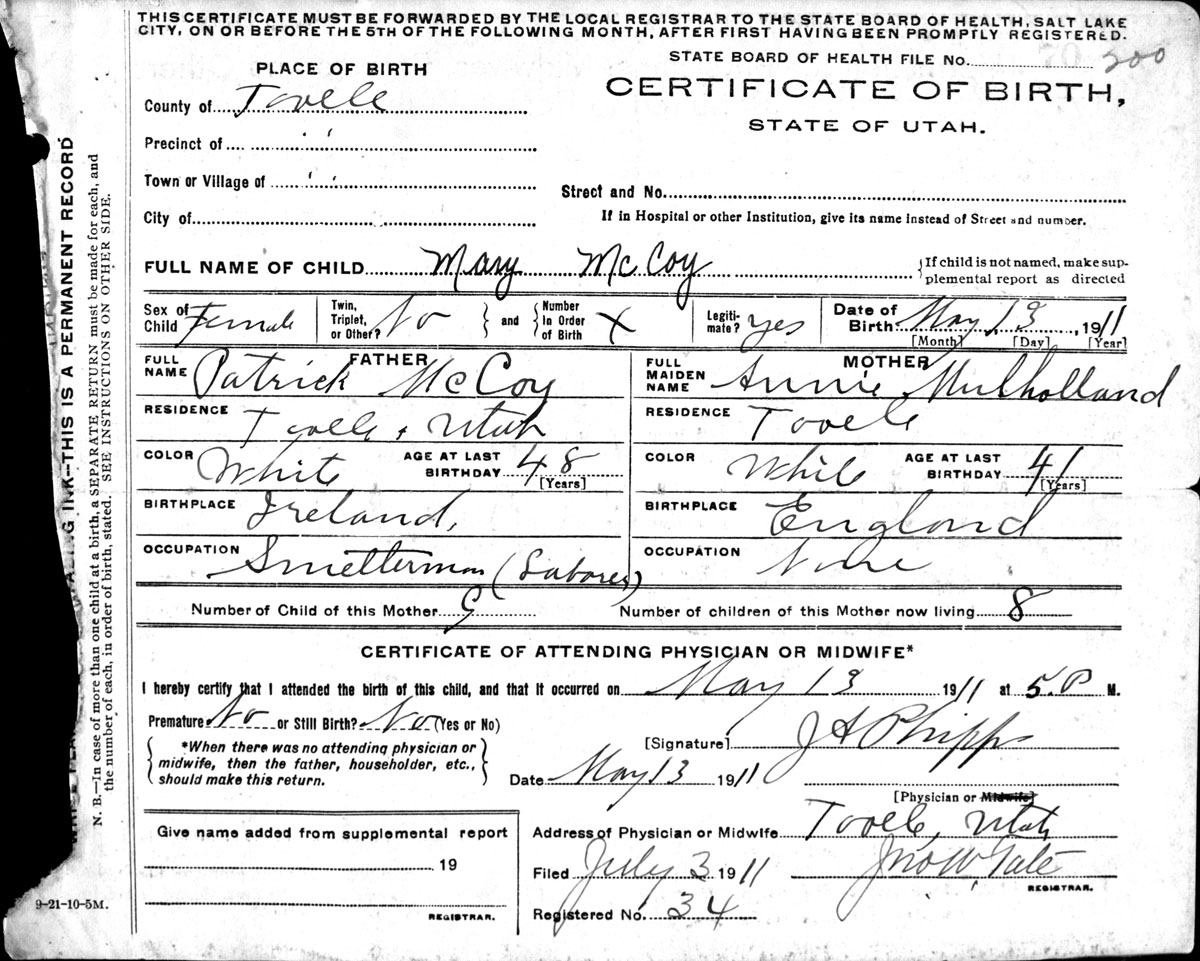 THIS CERTIFICATE MUST BE FORWARDED BY THE LOCAL REGISTRAR TO THE STATE BOARD OF HEALTH, SALT LAKE
CITY, ON OR BEFORE THE 5TH OF THE FOLLOWING MONTH, AFTER FIRST HAVING BEEN PROMPTLY REGISTERED.
STATE BOARD OF HEALTH FILE No. 200
PLACE OF BIRTH
CERTIFICATE OF BIRTH,
STATE OF UTAH.
County of Tooele
Precinct of " "
Town or Village of " "
Street and No.
City of
If in Hospital or other Institution, give its name instead of Street and number.
FULL NAME OF CHILD Mary McCoy
If child is not named, make sup-
plemental report as directed
Sex of Child Female
Twin, Triplet, or Other? No
and
Number In Order of Birth X
Legiti-mate? yes
Date of Birth May 13, 1911
[Month] [Day] [Year]
FATHER
FULL NAME Patrick McCoy
MOTHER
FULL MAIDEN NAME Annie Mulholland
RESIDENCE Tooele, Utah
RESIDENCE Tooele
COLOR White AGE AT LAST BIRTHDAY 48 [Years]
COLOR White AGE AT LAST BIRTHDAY 41 [Years]
BIRTHPLACE Ireland,
BIRTHPLACE England
OCCUPATION Smelterman (Laborer)
OCCUPATION None
Number of Child of this Mother 9
Number of children of this Mother now living 8
CERTIFICATE OF ATTENDING PHYSICIAN OR MIDWIFE*
I hereby certify that I attended the birth of this child, and that it occurred on May 13 1911 at 5.P M.
Premature No or Still Birth? No (Yes or No)
*When there was no attending physician or
midwife, then the father, householder, etc.,
should make this return.
[Signature] JA Phipps
Date May 13 1911
[Physician or Midwife]
Give name added from supplemental report
19
REGISTRAR.
Address of Physician or Midwife Tooele, Utah
Filed July 3 1911 Jno W Tate
REGISTRAR.
Registered No. 34
9-21-10-5M.
INK—THIS IS A PERMANENT RECORD
N. B.—In case of more than one child at a birth, a SEPARATE RETURN must be made for each, and
the number of each, in order of birth, stated. SEE INSTRUCTIONS ON OTHER SIDE.